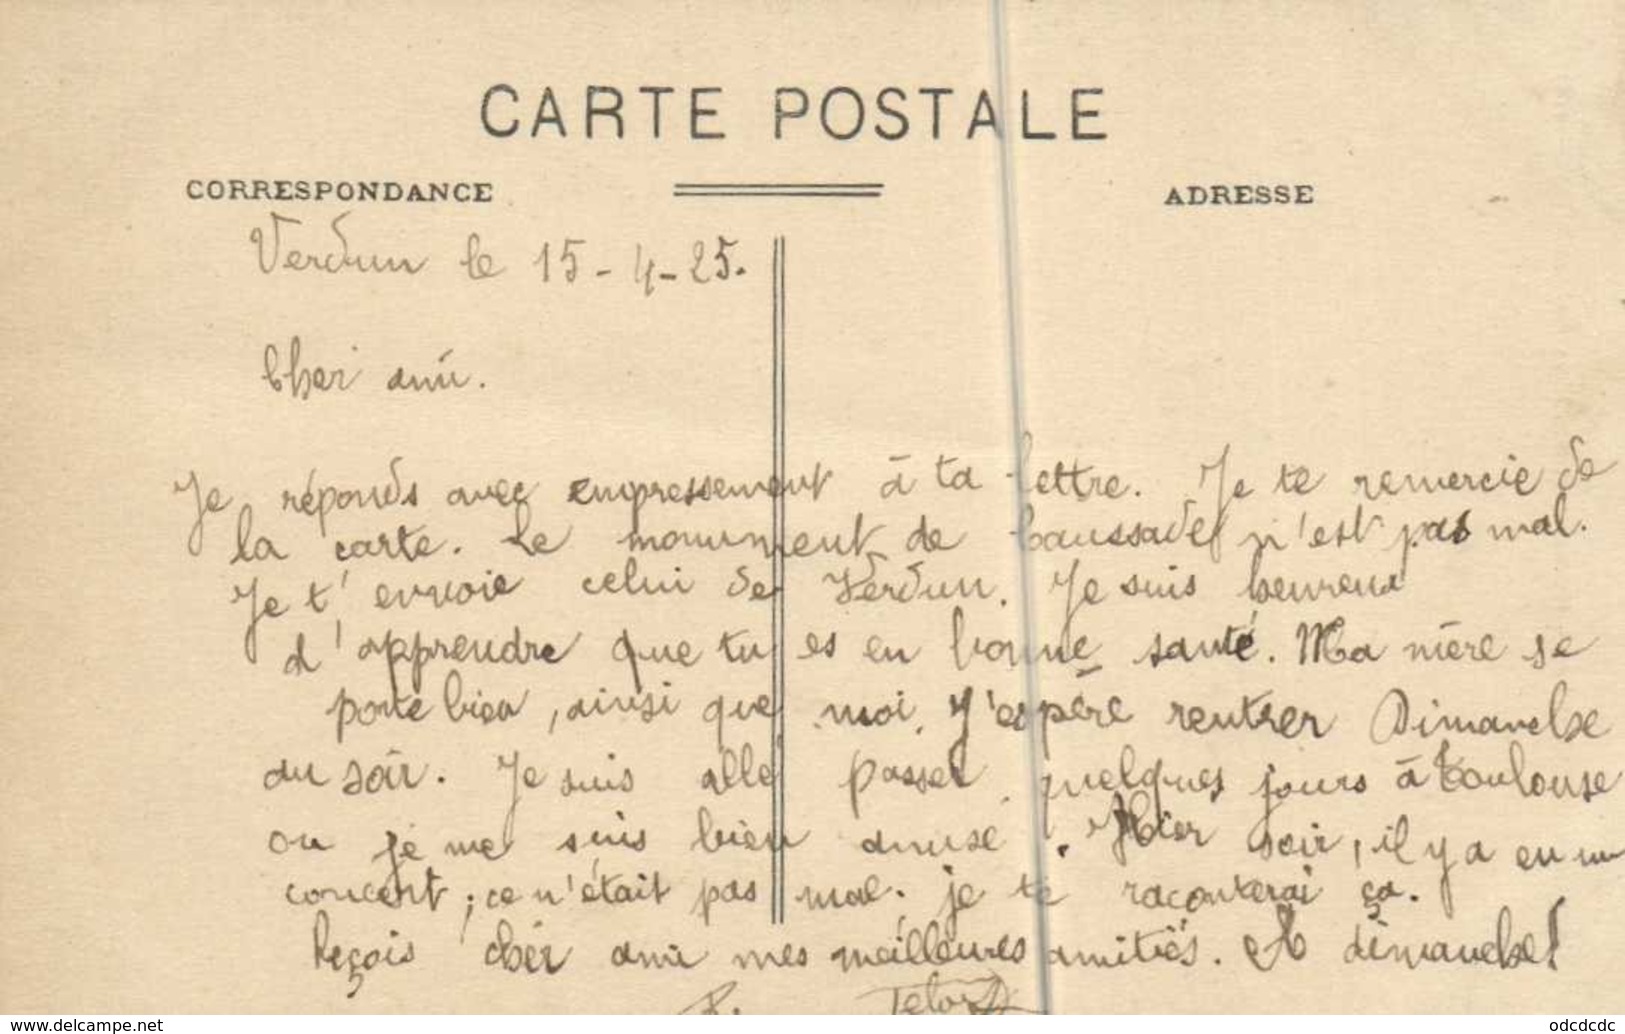 CARTE POSTALE
CORRESPONDANCE
ADRESSE
Verdun le 15-4-25.
Cher ami.
Je réponds avec empressement à ta lettre. Je te remercie de
la carte. Le monument de Caussade n'est pas mal.
Je t'envoie celui de Verdun. Je suis heureux
d'apprendre que tu es en bonne santé. Ma mère se
porte bien, ainsi que moi. J'espère rentrer Dimanche
au soir. Je suis allé passer quelques jours à Toulouse
ou je me suis bien amusé. Hier soir, il y a eu un
concert ; ce n'était pas mal. je te raconterai ça.
Reçois cher ami mes meilleures amitiés. A dimanche!
R.
www.delcampe.net
odcdcdc